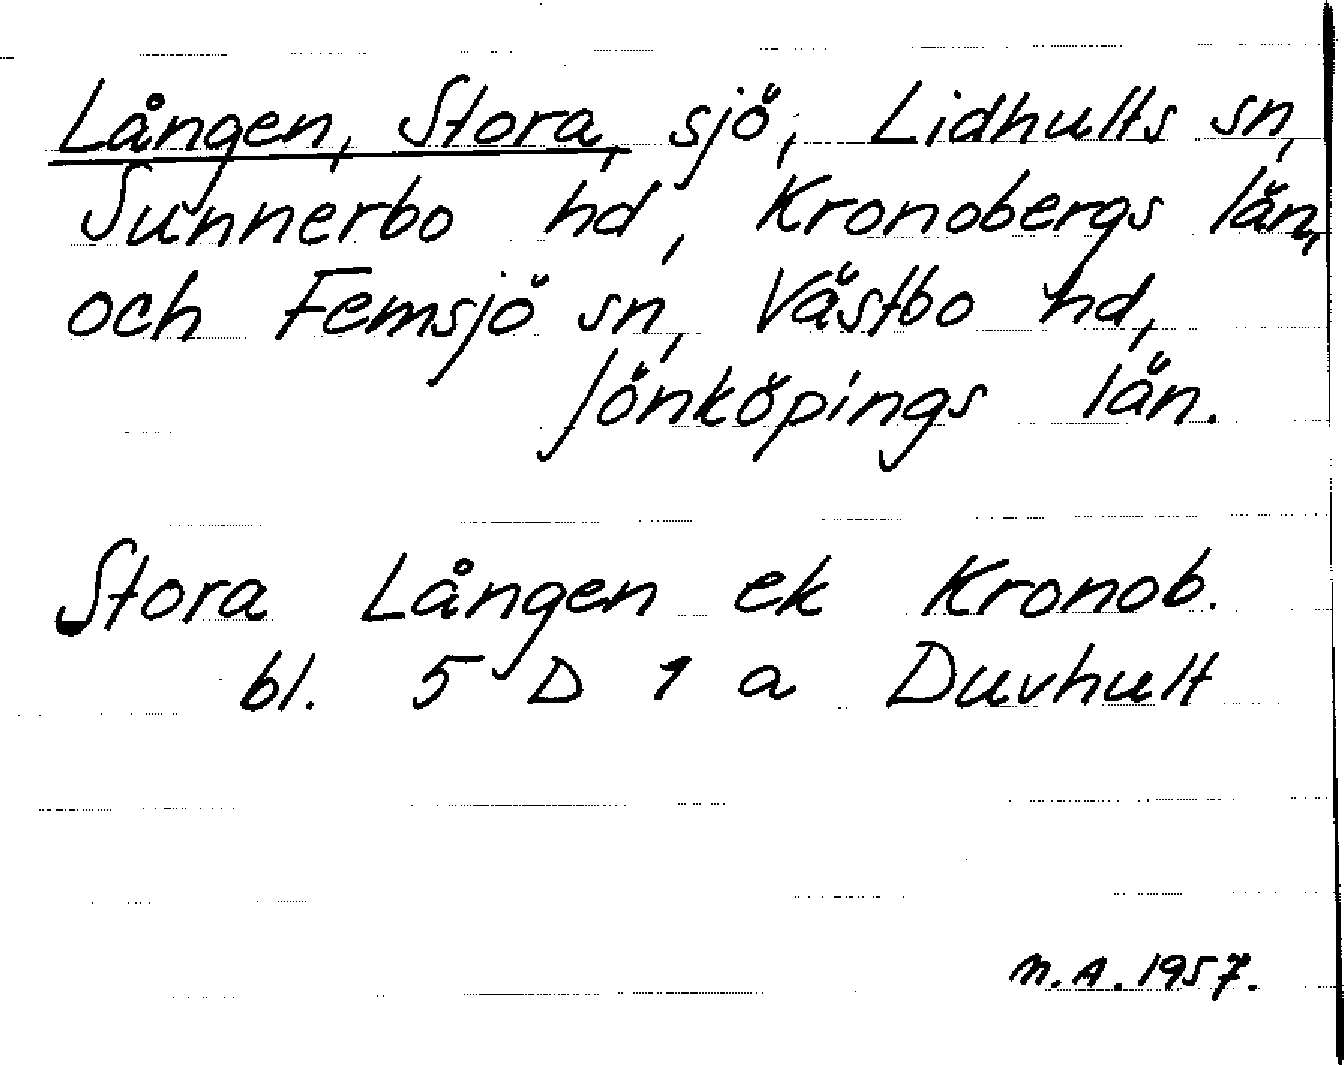 Lången, Stora, sjö, Lidhults sn,
Sunnerbo hd, Kronobergs län,
och Femsjö sn, Västbo hd,
Jönköpings län.
Stora Lången ek Kronob.
bl. 5 D 1 a Duvhult
N.A. 1957.